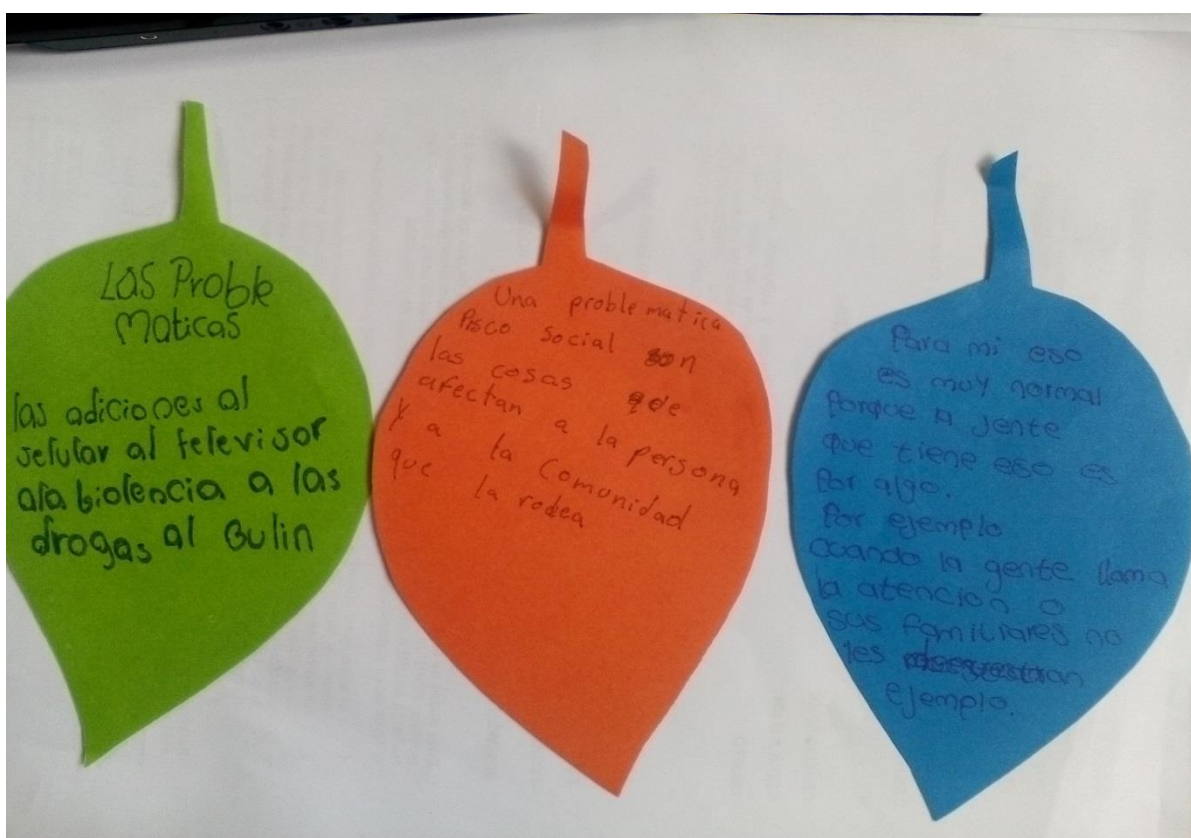 Las Proble
Maticas
las adiciones al
selular al televisor
ala biolencia a las
drogas al Bulin
Una problematica
Pisco social son
las cosas que
afectan a la persona
y a la comunidad
que la rodea
Para mi eso
es muy normal
Porque la jente
que tiene eso es
Por algo.
Por ejemplo
cuando la gente llama
la atencion o
sus familiares no
les
ejemplo.